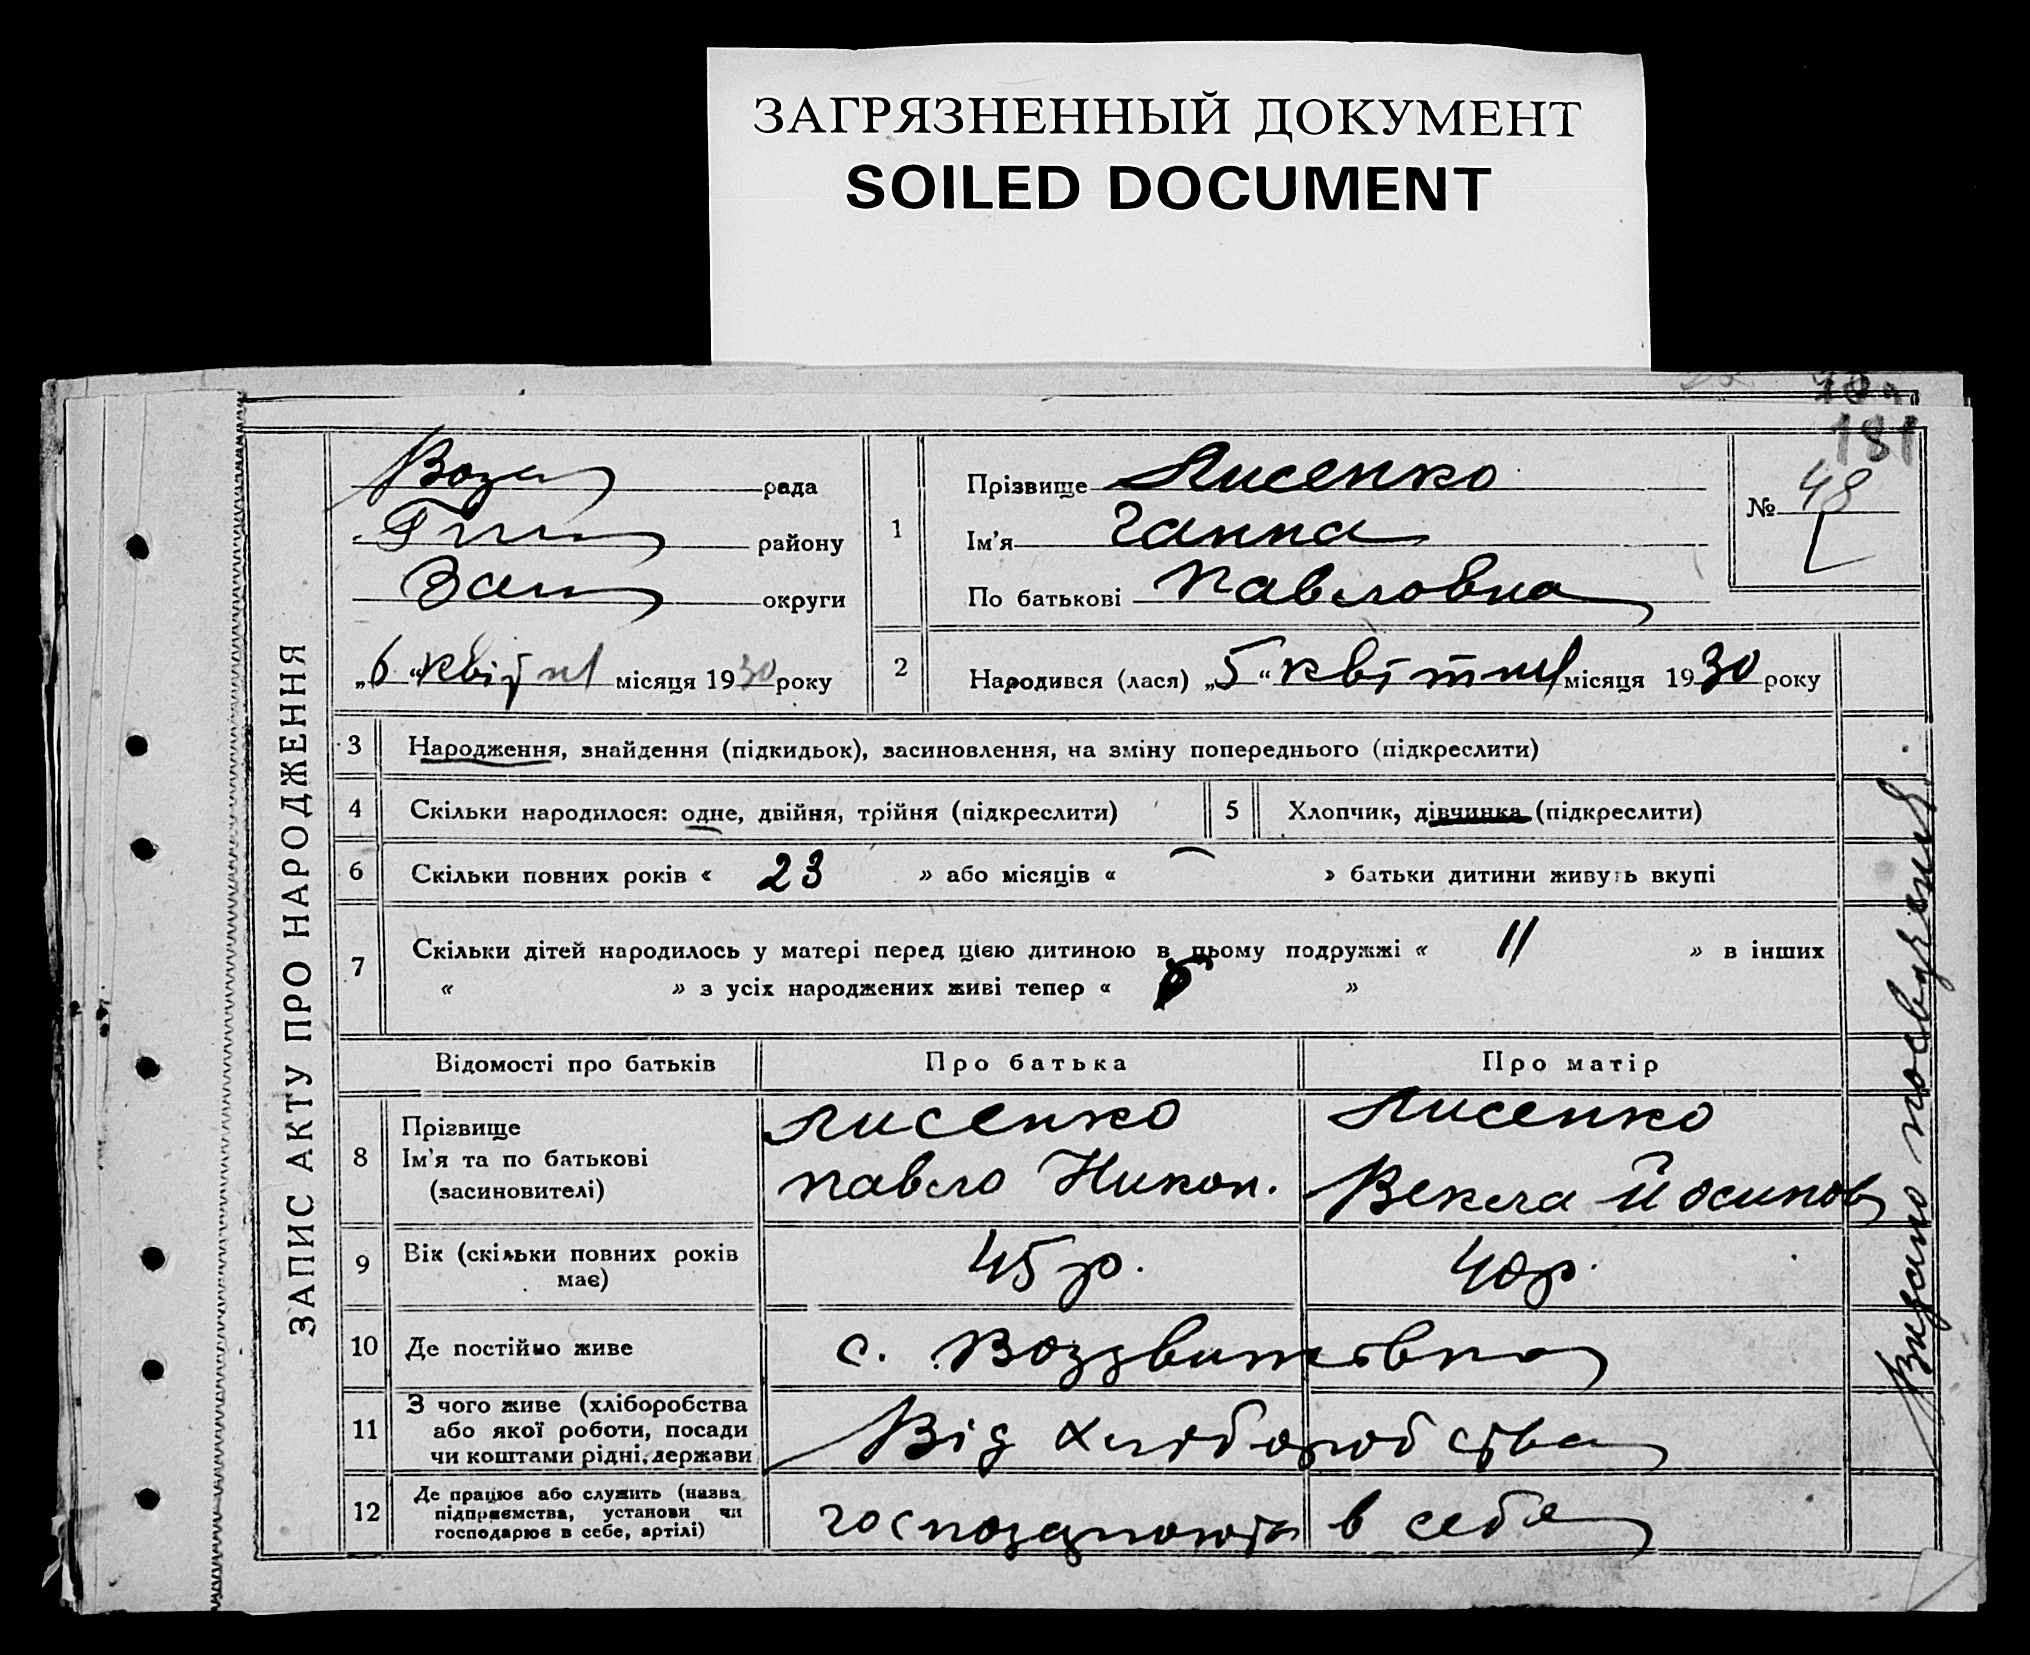 ЗАГРЯЗНЕННЫЙ ДОКУМЕНТ
SOILED DOCUMENT
181
ЗАПИС АКТУ ПРО НАРОДЖЕННЯ
рада
району
округи
„6“ квітня місяця 1930 року
1
Прізвище Лисенко
Ім'я Ганна
По батькові Павловна
№ 48
2
Народився (лася) „5“ квітня місяця 1930 року
3 Народження, знайдення (підкидьок), засиновлення, на зміну попереднього (підкреслити)
4 Скільки народилося: одне, двійня, трійня (підкреслити)
5 Хлопчик, дівчинка (підкреслити)
6 Скільки повних років « 23 » або місяців « — » батьки дитини живуть вкупі
7 Скільки дітей народилось у матері перед цією дитиною в цьому подружжі « 11 » в інших
« » з усіх народжених живі тепер « »
Відомості про батьків
Про батька
Про матір
8
Прізвище
Ім'я та по батькові
(засиновителі)
Лисенко
Павло Никон.
Лисенко
Векла Йосипов
9
Вік (скільки повних років
має)
45 р.
40 р.
10 Де постійно живе
с. Воздвижівка
11
З чого живе (хліборобства
або якої роботи, посади
чи коштами рідні, держави
Від хліборобства
12
Де працює або служить (назва
підприємства, установи чи
господарює в себе, артілі)
господарюють в себе
Видано посвідчення.